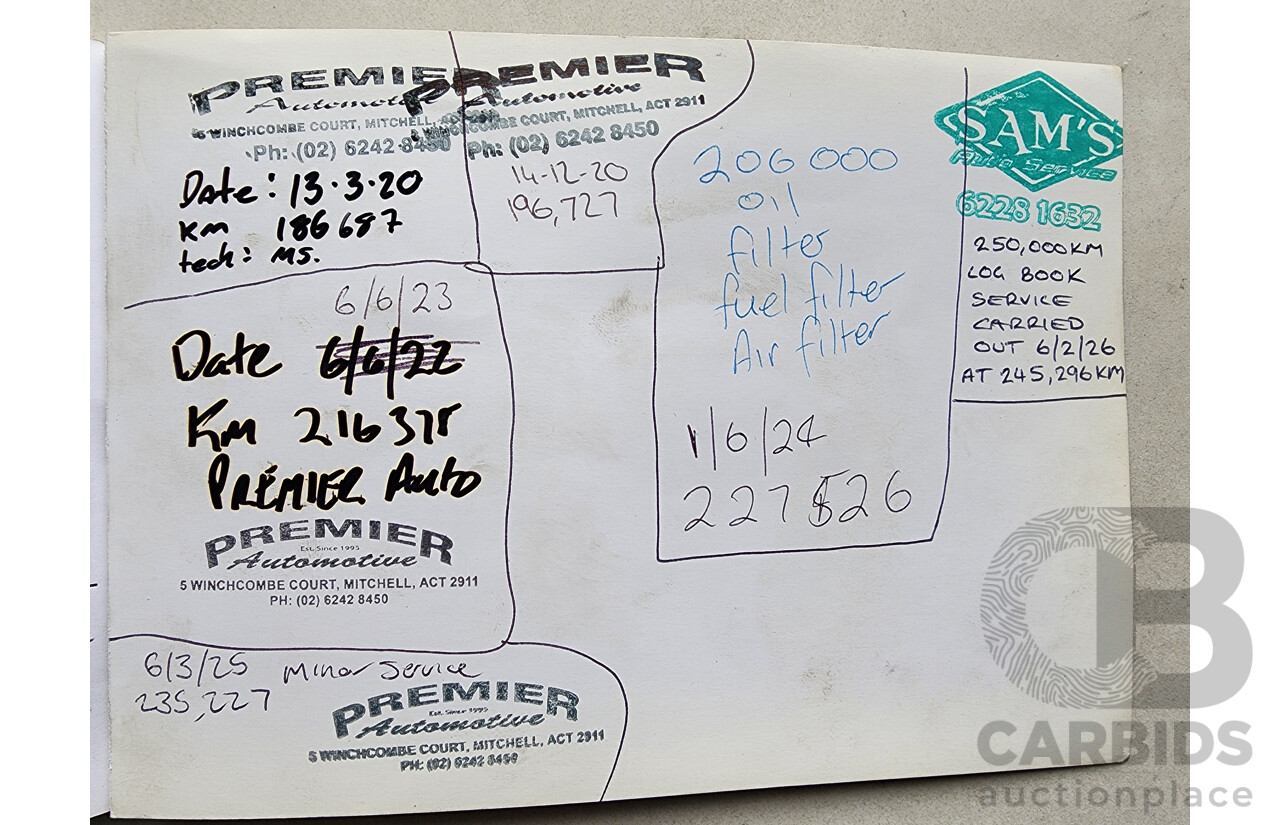 PREMIER
Automotive
5 WINCHCOMBE COURT, MITCHELL, ACT 2911
Ph: (02) 6242 8450
Date: 13.3.20
Km 186687
tech: MS.
PREMIER
Automotive
5 WINCHCOMBE COURT, MITCHELL, ACT 2911
Ph: (02) 6242 8450
14-12-20
196,727
206000
oil
filter
fuel filter
Air filter
1/6/24
227526
SAM'S
Auto Service
6228 1632
250,000KM
LOG BOOK
SERVICE
CARRIED
OUT 6/2/26
AT 245,296KM
6/6/23
Date 6/6/22
Km 216375
PREMIER Auto
PREMIER
Est. Since 1995
Automotive
5 WINCHCOMBE COURT, MITCHELL, ACT 2911
PH: (02) 6242 8450
6/3/25 Minor Service
235,227
PREMIER
Est. Since 1995
Automotive
5 WINCHCOMBE COURT, MITCHELL, ACT 2911
PH: (02) 6242 8450
CARBIDS
auctionplace